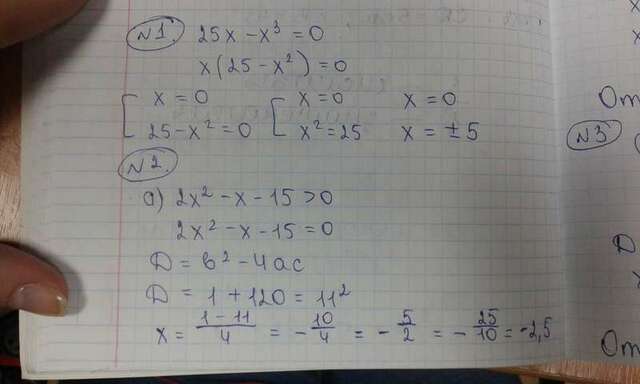 №1. 25x - x³ = 0
x(25 - x²) = 0
[ x = 0 [ x = 0 x = 0
25 - x² = 0 x² = 25 x = ±5
№2.
а) 2x² - x - 15 > 0
2x² - x - 15 = 0
D = b² - 4ac
D = 1 + 120 = 11²
x = (1 - 11)/4 = - 10/4 = - 5/2 = - 25/10 = -2,5
От
№3
D
x
От